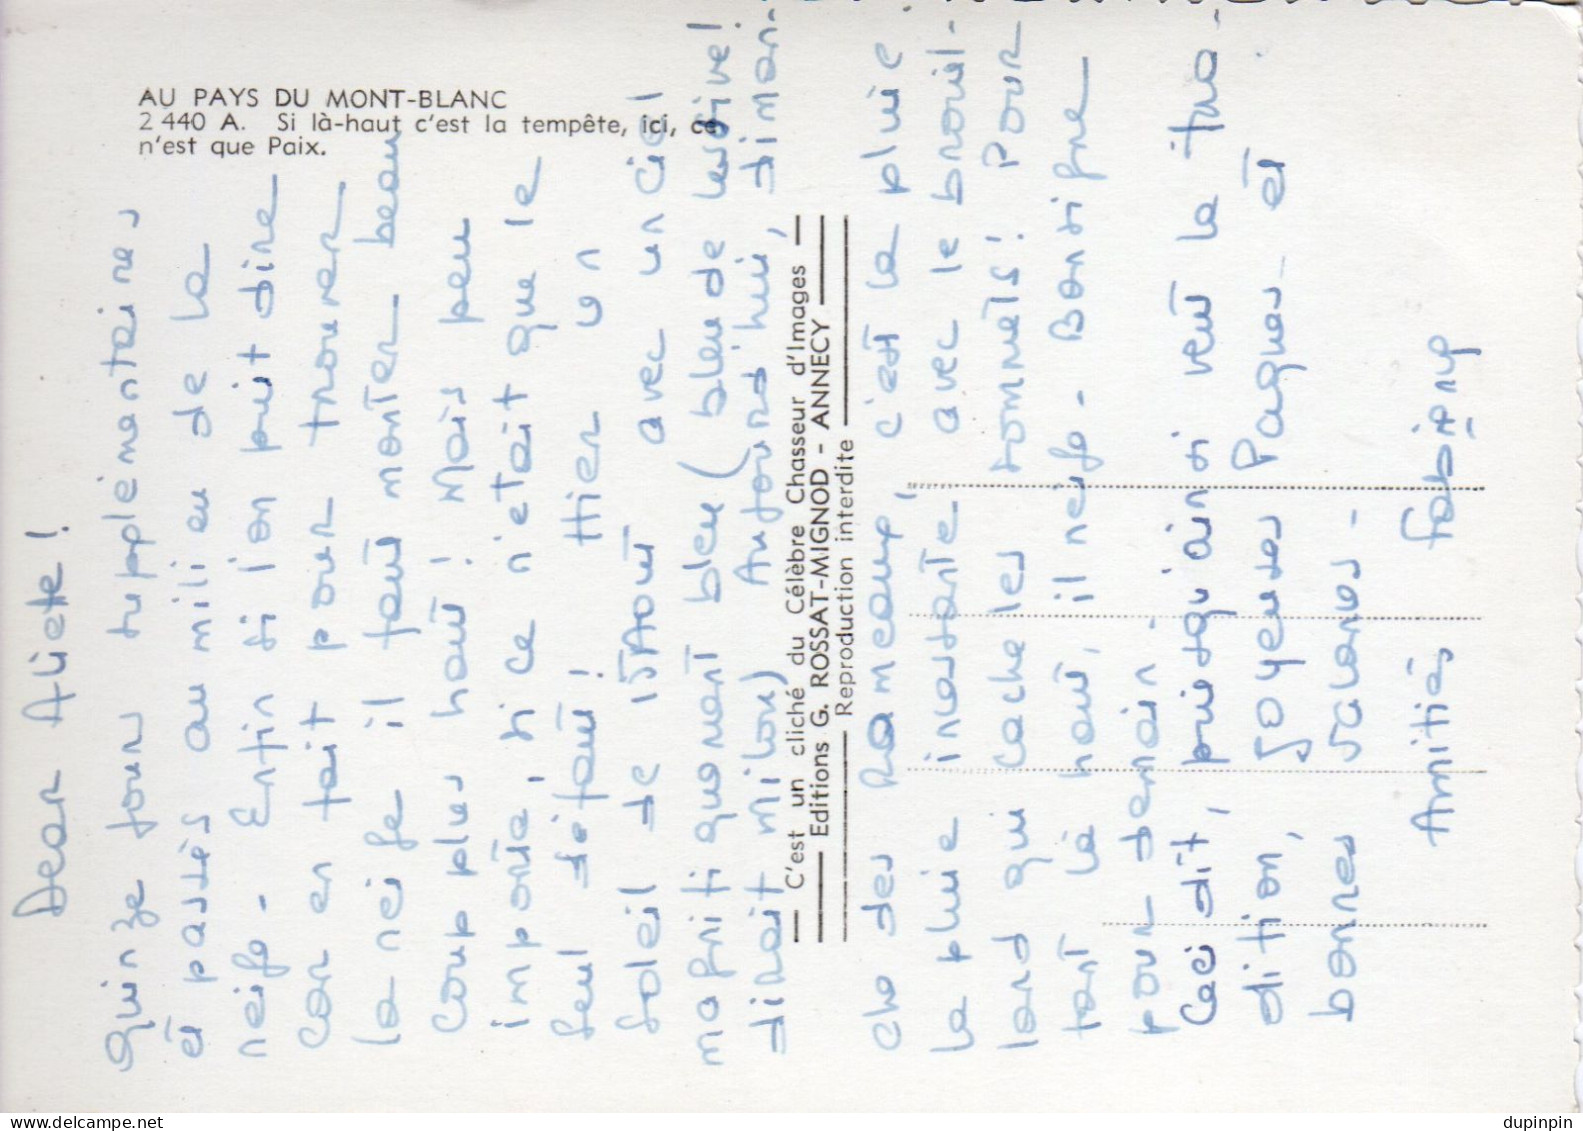 AU PAYS DU MONT-BLANC
2 440 A. Si là-haut c'est la tempête, ici, ce
n'est que Paix.
C'est un cliché du Célèbre Chasseur d'Images
Editions G. ROSSAT-MIGNOD - ANNECY
Reproduction interdite
Dear Aliette!
quinze jour supplémentaires
et passés au milieu de la
neige - Enfin si l'on puit dire
car en fait pour trouver
la neige il faut monter beau
coup plus haut! Mais peu
importe, si ce n'était que le
seul défaut! Hier un
soleil de avec un ciel
magnifiquement bleu (bleu de lessive!
dirait Milou) Aujourd'hui, diman-
che des Rameaux, c'est la pluie
la pluie incessante avec le brouil-
lard qui cache les sommets! Pour
tant là haut, il neige - Bon signe
pour demain -
Ceci dit, puisqu'ainsi veut la tra-
dition, Joyeuses Paques et
bonnes vacances -
Amitiés Fabieny
dupinpin